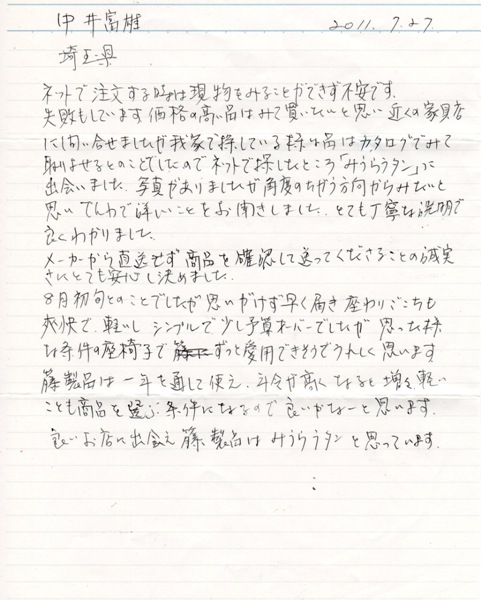 中井富雄 2011.7.27
埼玉県
ネットで注文する時は現物をみることができず不安です。
失敗もしています 価格の高い品はみて買いたいと思い 近くの家具店
に問い合せましたが我家で探している様な品はカタログでみて
取りよせるとのことでしたのでネットで探したところ「みうらラタン」に
出会いました。写真がありましたが角度のちがう方向からみたいと
思い でんわで詳しいことをお聞きしました。とても丁寧な説明で
良くわかりました。
メーカーから直送せず商品を確認して送ってくださることの誠実
さにとても安心し決めました。
8月初旬とのことでしたが思いがけず早く届き 座わりごこちも
爽快で、軽いし シンプルで少し予算オーバーでしたが 思った様
な条件の座椅子で ずっと愛用できそうでうれしく思います
籐製品は一年を通して使え、年令が高くなると増々軽い
ことも商品を選ぶ条件になるので良いかなーと思います。
良いお店に出会え 籐製品は みうらラタンと思っています。